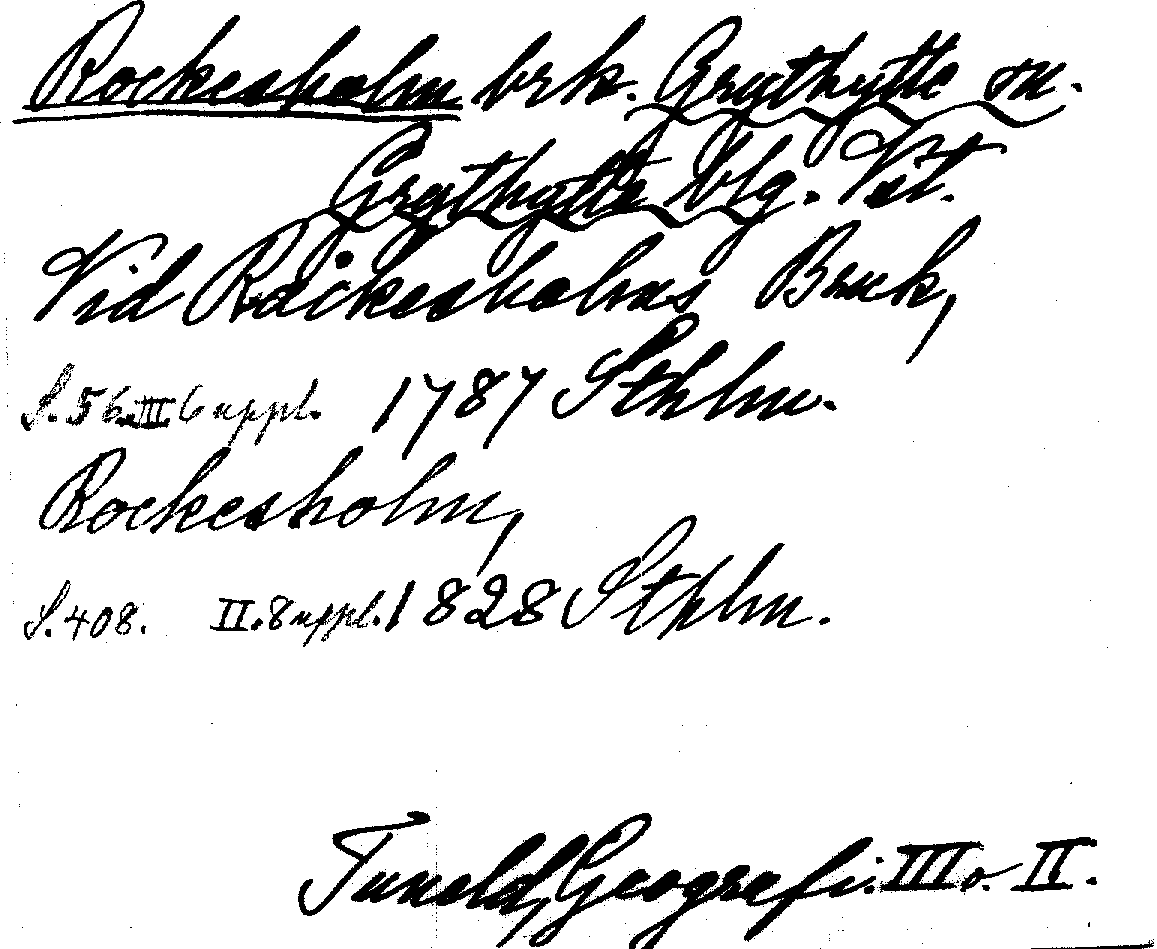 Rockesholm brk. Grythytte sn.
Grythytte blg. Vstl.
Vid Råckesholms Bruk,
S. 56. III 6 uppl. 1787 Sthlm.
Rockesholm,
S. 408. II. 8 uppl. 1828 Sthlm.
Tuneld, Geografi. III o. II.